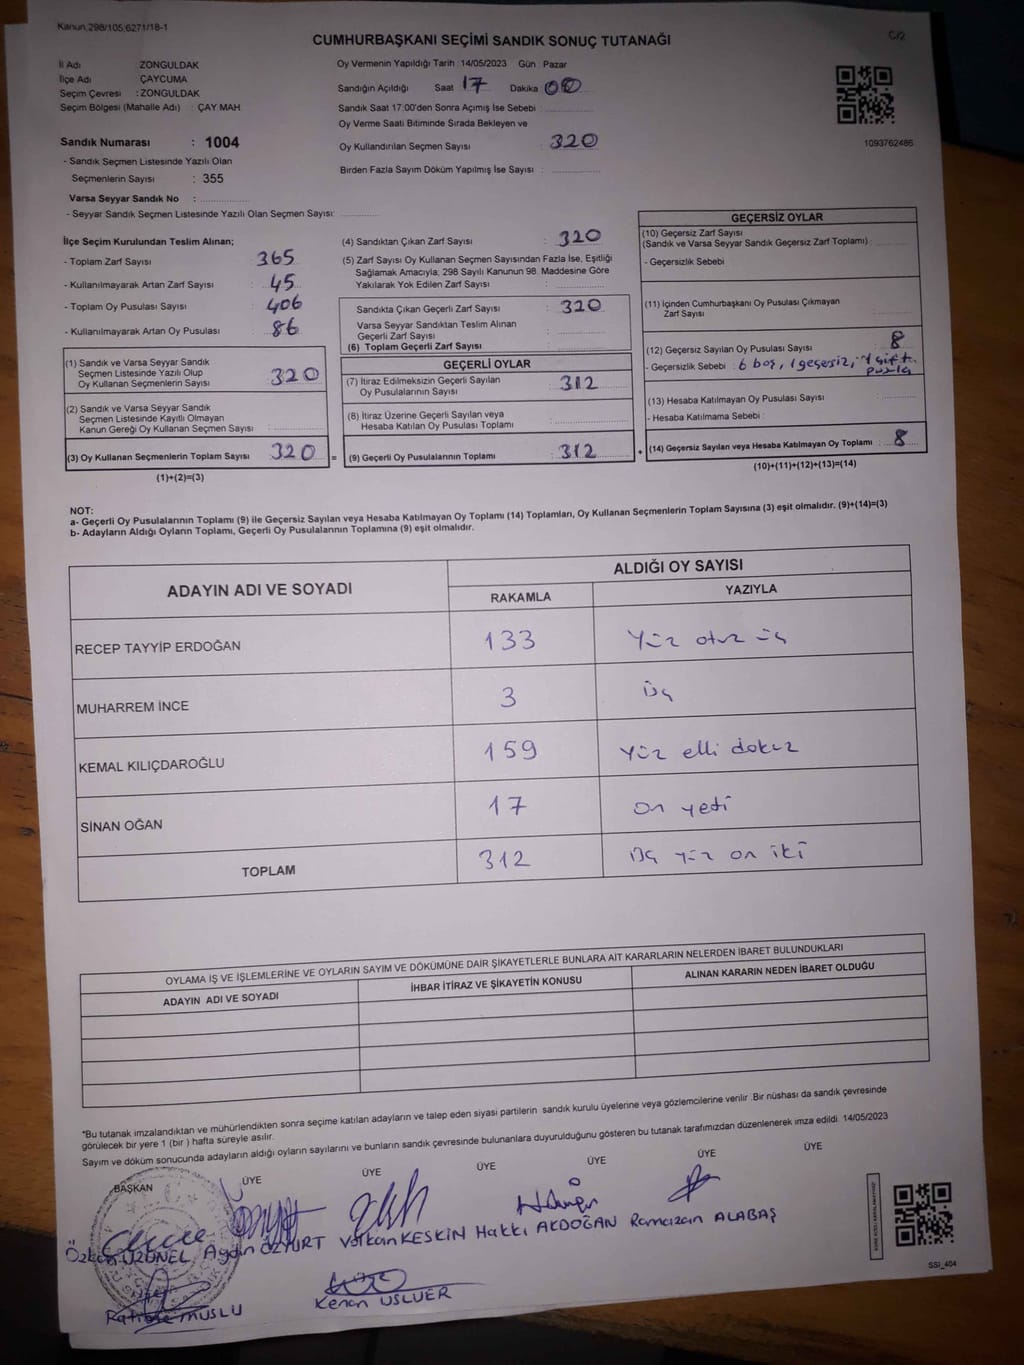 Kanun,298/105,6271/18-1
CUMHURBAŞKANI SEÇİMİ SANDIK SONUÇ TUTANAĞI
C/2
İl Adı ZONGULDAK
İlçe Adı ÇAYCUMA
Seçim Çevresi : ZONGULDAK
Seçim Bölgesi (Mahalle Adı) : ÇAY MAH
Sandık Numarası : 1004
- Sandık Seçmen Listesinde Yazılı Olan
Seçmenlerin Sayısı : 355
Varsa Seyyar Sandık No :
- Seyyar Sandık Seçmen Listesinde Yazılı Olan Seçmen Sayısı:
Oy Vermenin Yapıldığı Tarih : 14/05/2023 Gün : Pazar
Sandığın Açıldığı Saat 17 Dakika 00
Sandık Saat 17:00'den Sonra Açımış İse Sebebi :
Oy Verme Saati Bitiminde Sırada Bekleyen ve
Oy Kullandırılan Seçmen Sayısı : 320
Birden Fazla Sayım Döküm Yapılmış İse Sayısı :
1093762486
İlçe Seçim Kurulundan Teslim Alınan;
- Toplam Zarf Sayısı : 365
- Kullanılmayarak Artan Zarf Sayısı : 45
- Toplam Oy Pusulası Sayısı : 406
- Kullanılmayarak Artan Oy Pusulası : 86
(1) Sandık ve Varsa Seyyar Sandık
Seçmen Listesinde Yazılı Olup
Oy Kullanan Seçmenlerin Sayısı : 320
(2) Sandık ve Varsa Seyyar Sandık
Seçmen Listesinde Kayıtlı Olmayan
Kanun Gereği Oy Kullanan Seçmen Sayısı :
(3) Oy Kullanan Seçmenlerin Toplam Sayısı : 320 =
(1)+(2)=(3)
(4) Sandıktan Çıkan Zarf Sayısı : 320
(5) Zarf Sayısı Oy Kullanan Seçmen Sayısından Fazla İse, Eşitliği
Sağlamak Amacıyla; 298 Sayılı Kanunun 98. Maddesine Göre
Yakılarak Yok Edilen Zarf Sayısı :
Sandıkta Çıkan Geçerli Zarf Sayısı : 320
Varsa Seyyar Sandıktan Teslim Alınan
Geçerli Zarf Sayısı :
(6) Toplam Geçerli Zarf Sayısı :
GEÇERLİ OYLAR
(7) İtiraz Edilmeksizin Geçerli Sayılan
Oy Pusulalarının Sayısı : 312
(8) İtiraz Üzerine Geçerli Sayılan veya
Hesaba Katılan Oy Pusulası Toplamı :
(9) Geçerli Oy Pusulalarının Toplamı : 312 +
GEÇERSİZ OYLAR
(10) Geçersiz Zarf Sayısı
(Sandık ve Varsa Seyyar Sandık Geçersiz Zarf Toplamı) :
- Geçersizlik Sebebi :
(11) İçinden Cumhurbaşkanı Oy Pusulası Çıkmayan
Zarf Sayısı :
(12) Geçersiz Sayılan Oy Pusulası Sayısı : 8
- Geçersizlik Sebebi : 6 boş, 1 geçersiz, 1 çift
pusla
(13) Hesaba Katılmayan Oy Pusulası Sayısı :
- Hesaba Katılmama Sebebi :
(14) Geçersiz Sayılan veya Hesaba Katılmayan Oy Toplamı : 8
(10)+(11)+(12)+(13)=(14)
NOT:
a- Geçerli Oy Pusulalarının Toplamı (9) ile Geçersiz Sayılan veya Hesaba Katılmayan Oy Toplamı (14) Toplamları, Oy Kullanan Seçmenlerin Toplam Sayısına (3) eşit olmalıdır. (9)+(14)=(3)
b- Adayların Aldığı Oyların Toplamı, Geçerli Oy Pusulalarının Toplamına (9) eşit olmalıdır.
ADAYIN ADI VE SOYADI
ALDIĞI OY SAYISI
RAKAMLA YAZIYLA
RECEP TAYYİP ERDOĞAN 133 Yüz otuz üç
MUHARREM İNCE 3 üç
KEMAL KILIÇDAROĞLU 159 Yüz elli dokuz
SİNAN OĞAN 17 on yedi
TOPLAM 312 üç yüz on iki
OYLAMA İŞ VE İŞLEMLERİNE VE OYLARIN SAYIM VE DÖKÜMÜNE DAİR ŞİKAYETLERLE BUNLARA AİT KARARLARIN NELERDEN İBARET BULUNDUKLARI
ADAYIN ADI VE SOYADI İHBAR İTİRAZ VE ŞİKAYETİN KONUSU ALINAN KARARIN NEDEN İBARET OLDUĞU
*Bu tutanak imzalandıktan ve mühürlendikten sonra seçime katılan adayların ve talep eden siyasi partilerin sandık kurulu üyelerine veya gözlemcilerine verilir .Bir nüshası da sandık çevresinde
görülecek bir yere 1 (bir ) hafta süreyle asılır.
Sayım ve döküm sonucunda adayların aldığı oyların sayılarını ve bunların sandık çevresinde bulunanlara duyurulduğunu gösteren bu tutanak tarafımızdan düzenlenerek imza edildi. 14/05/2023
BAŞKAN ÜYE ÜYE ÜYE ÜYE ÜYE ÜYE
Özkan UZUNEL Aydın ÖZYURT Volkan KESKİN Hakkı AKDOĞAN Ramazan ALABAŞ
MUSLU Kenan USLUER
SSİ_404